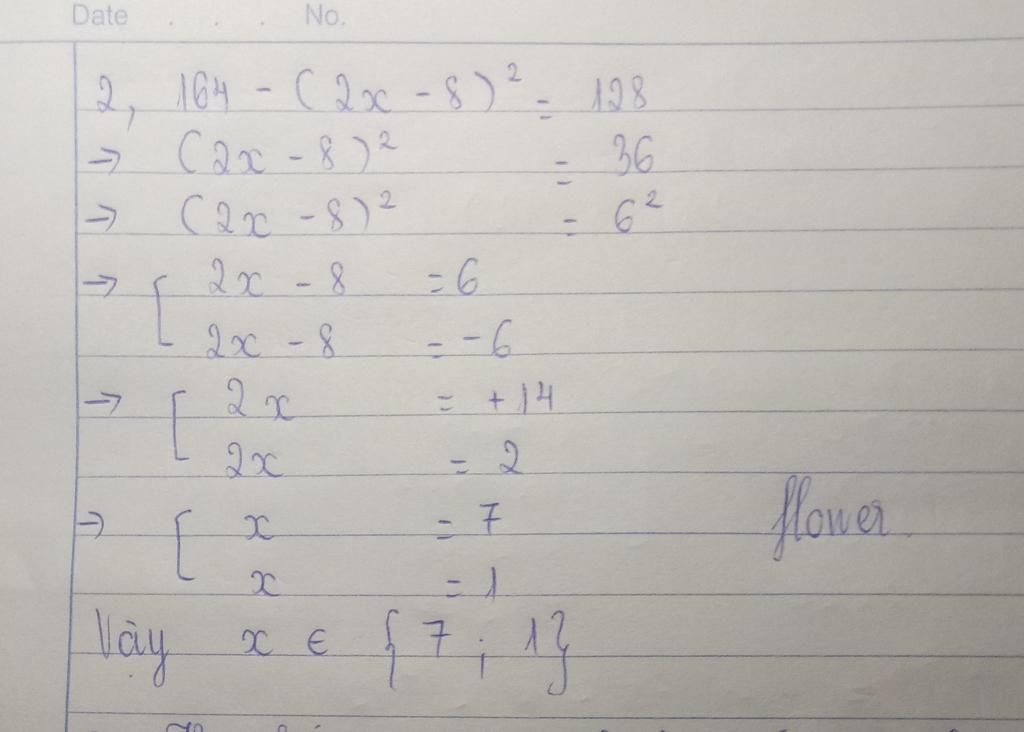 Date . . . No.
2, 164 - (2x - 8)² = 128
→ (2x - 8)² = 36
→ (2x - 8)² = 6²
→ [ 2x - 8 = 6
2x - 8 = -6
→ [ 2x = +14
2x = 2
→ [ x = 7
x = 1
flower
Vậy x ∈ {7 ; 1}